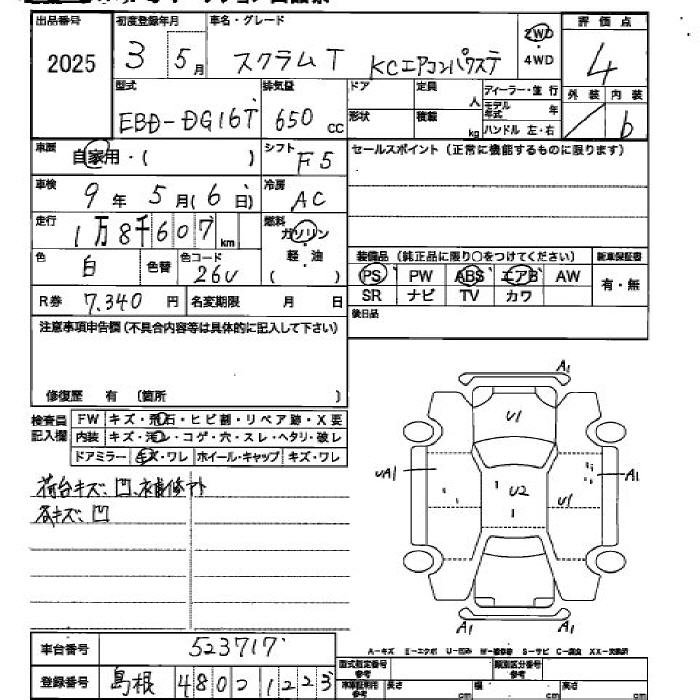 出品番号 2025
初度登録年月 3 5月
車名・グレード スクラムT KCエアコンパワステ
2WD・4WD
評価点 4
外装 内装 b
型式 EBD-DG16T
排気量 650 CC
ドア 定員 人
形状 積載 kg
ディーラー・並行
モデル年式 年
ハンドル 左・右
車歴 自家用・( )
シフト F5
セールスポイント (正常に機能するものに限ります)
車検 9年5月(6日)
冷房 AC
走行 1万8千607km
燃料 ガソリン・軽・油 ( )
色 白 色替 色コード 26U
装備品 (純正品に限り○をつけてください) 新車保証書
PS PW ABS エアB AW 有・無
SR ナビ TV カワ
R券 7,340円 名変期限 月 日
後日品
注意事項申告欄 (不具合内容等は具体的に記入して下さい)
修復歴 有 (箇所 )
検査員記入欄
FW キズ・飛石・ヒビ割・リペア跡・X要
内装 キズ・汚レ・コゲ・穴・スレ・ヘタリ・破レ
ドアミラー キズ・ワレ ホイール・キャップ キズ・ワレ
荷台キズ、凹、補修アト
各キズ、凹
A1
U1
UA1
U2
U1
A1
A1
A1
A-キズ E-エクボ U-凹み W-補修跡 S-サビ C-腐食 XX-交換済
車台番号 523717
登録番号 島根 480 2 1223
型式指定番号 参考 類別区分番号 参考
車庫証明用 参考 長さ cm 幅 cm 高さ cm